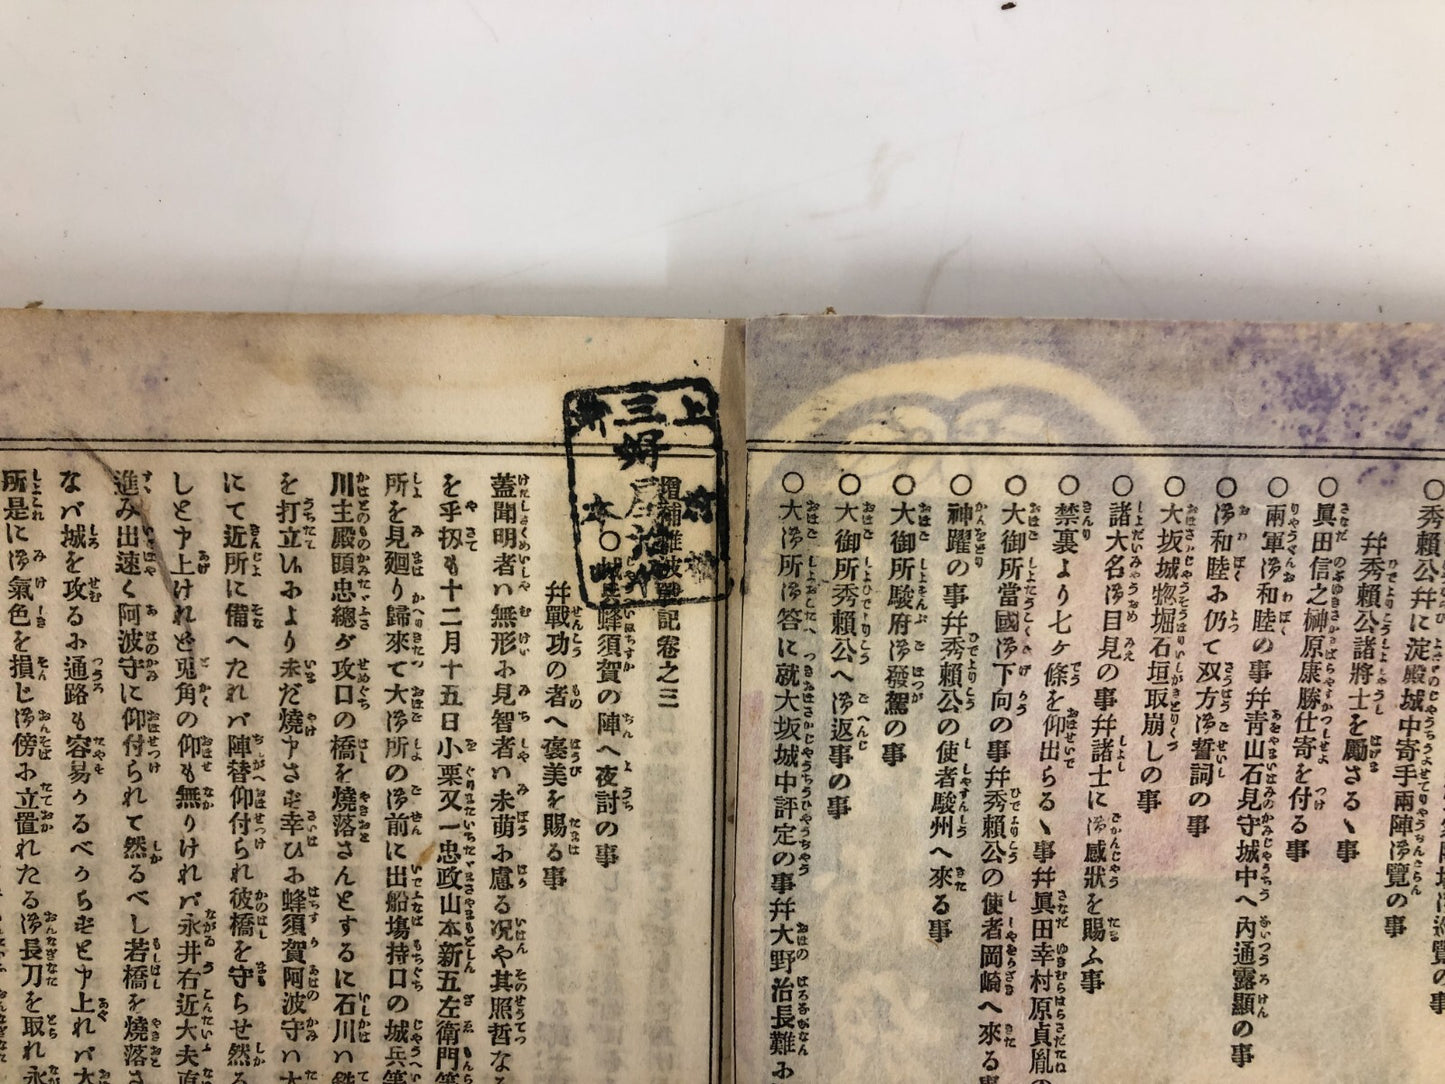 ○秀頼公幷に淀殿城中寄手両陣御覧の事
幷秀頼公諸將士を勵さるゝ事
○眞田信之榊原康勝仕寄を付る事
○兩軍御和睦の事幷靑山石見守城中へ內通露顯の事
○御和睦お仍て双方御誓詞の事
○大坂城惣堀石垣取崩しの事
○諸大名御目見の事幷諸士に御感狀を賜ふ事
○禁裏より七ヶ條を仰出らるゝ事幷眞田幸村原貞胤の
○大御所當國御下向の事幷秀賴公の使者岡崎へ來る事
○神躍の事幷秀賴公の使者駿州へ來る事
○大御所駿府御發駕の事
○大御所秀賴公へ御返事の事
○大御所御答に就大坂城中評定の事幷大野治長難お
增補難波戰記卷之三
○蜂須賀の陣へ夜討の事
幷戰功の者へ褒美を賜る事
蓋聞明者ハ無形お見智者ハ未萌お慮る况や其照哲な
を乎扨も十二月十五日小栗又一忠政山本新五左衛門等
所を見廻り歸來て大御所の御前に出船塲持口の城兵等
川主殿頭忠總が攻口の橋を燒落さんとするに石川ハ鉄
を打立しおより未だ燒申さず幸ひお蜂須賀阿波守ハ大
にて近所に備へたれバ陣替仰付られ彼橋を守らせ然る
しと申上けれど兎角の仰も無りけれバ永井右近大夫直
進み出速く阿波守に仰付られて然るべし若橋を燒落さ
なバ城を攻るお通路も容易かるべからずと申上れバ大
所是に御氣色を損じ御傍お立置れたる御長刀を取れ永
三婦屋治